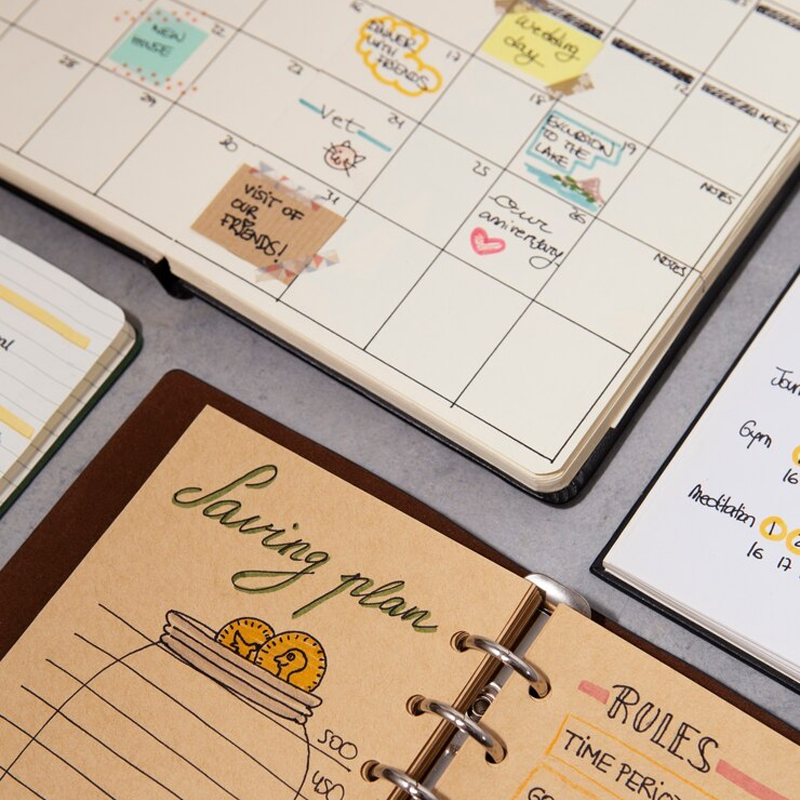 NEW
HOUSE
DINNER
WITH
FRIENDS
Wedding
day
16
17
12
NOTES
28
29
Vet
24
18
EXCURSION
TO THE
LAKE
19
NOTES
30
VISIT OF
OUR
FRIENDS!
31
25
Our
anniversary
26
NOTES
Saving plan
500
450
RULES
TIME
Gym
16
Meditation 1
16 17